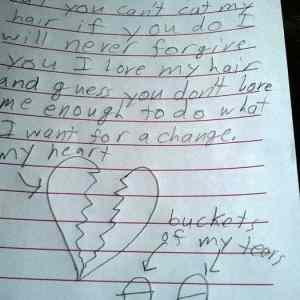 you can't cut my
hair if you do I
will never forgive
you I love my hair
and guess you don't love
me enough to do what
I want for a change.
my heart
buckets
of my tears